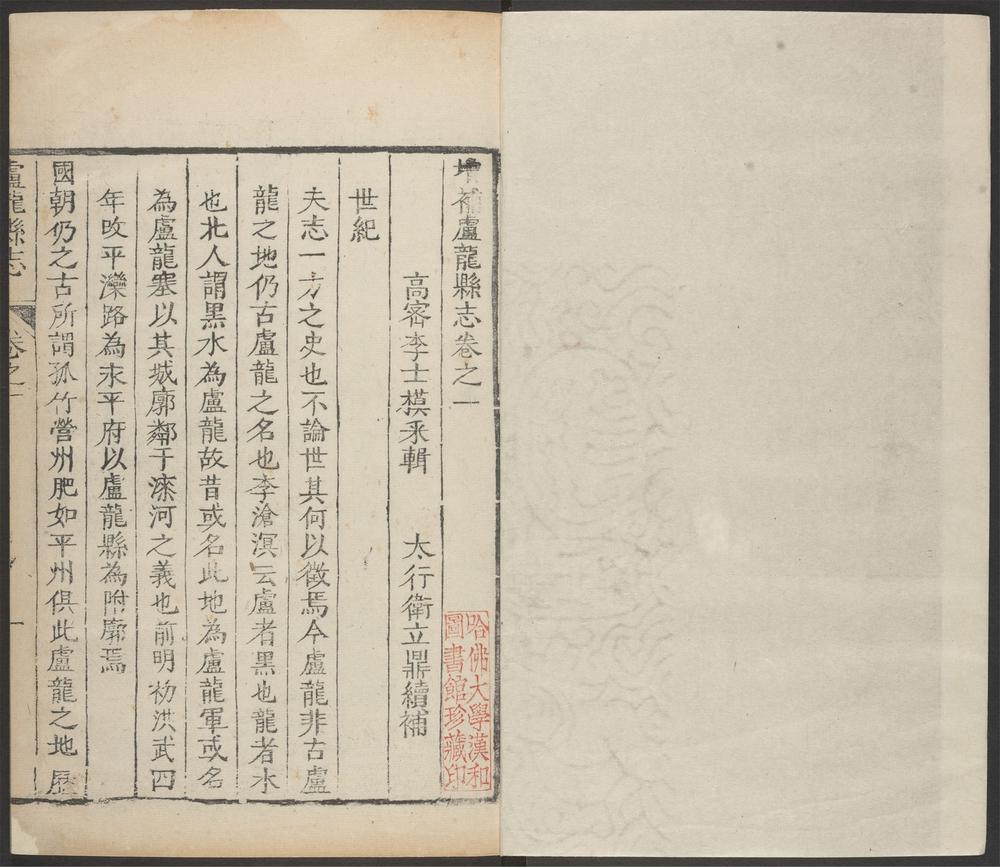 增補盧龍縣志卷之一
高密李士模采輯 太行衛立鼎續補
世紀
夫志一方之史也不論世其何以徵焉今盧龍非古盧
龍之地仍古盧龍之名也李滄溟云盧者黑也龍者水
也北人謂黑水為盧龍故昔或名此地為盧龍軍或名
為盧龍塞以其城廓鄰于漆河之義也前明初洪武四
年改平灤路為永平府以盧龍縣為附廓焉
國朝仍之古所謂孤竹營州肥如平州俱此盧龍之地歷
盧龍縣志 卷之一 一
哈佛大學漢和
圖書館珍藏印